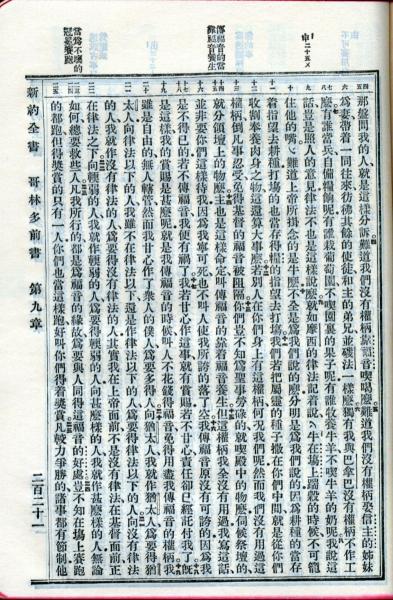 申二十五〤
傳福音的當
靠福音養生
當為不壞的
冠冕賽跑
那盤問我的人、就是這樣分訴、難道我們沒有權柄靠福音喫喝麼、難道我們沒有權柄娶信主的姊妹
為妻帶着一同往來彷彿其餘的使徒和主的弟兄並磯法一樣麼獨有我與巴拿巴沒有權柄不作工
麼有誰當兵自備糧餉呢有誰栽葡萄園不喫園裏的果子呢有誰牧養牛羊不喫牛羊的奶呢我說這
話豈是照人的意見律法不也是這樣說麼就如摩西的律法記着說、牛在場上踹穀的時候不可籠
住他的嘴、難道上帝所掛念的是牛麼不全是為我們說的麼分明是為我們說的因為耕種的當存
着指望去耕種打場的也當存得糧的指望去打場我們若把屬靈的種子撒在你們中間就是從你們
收割奉養肉身之物這還算大事麼若別人在你們身上有這權柄何況我們呢然而我們沒有用過這
權柄倒凡事忍受免得基督的福音被阻隔你們豈不知為聖事勞碌的就喫殿中的物麼伺候祭壇的
就分領壇上的物麼主也是這樣命定叫傳福音的靠着福音養生但這權柄我全沒有用過我寫這話
並非要你們這樣待我因為我寧可死也不叫人使我所誇的落了空我傳福音原沒有可誇的因為我
是不得已的若不傳福音我便有禍了我若甘心作這事就有賞賜若不甘心責任卻已經託付我了既
是這樣我的賞賜是甚麼呢就是我傳福音的時候叫人不花錢得福音免得用盡我傳福音的權柄我
雖是自由的無人轄管然而我甘心作了衆人的僕人為要多得人向猶太人我就作猶太人為要得猶
太人向律法以下的人我雖不在律法以下還是作律法以下的人為要得律法以下的人向沒有律法
的人我就作沒有律法的人為要得沒有律法的人其實我在上帝面前不是沒有律法在基督面前正
在律法之下向輭弱的人我就作輭弱的人為要得輭弱的人向甚麼樣的人我就作甚麼樣的人無論
如何總要救些人凡我所行的都是為福音的緣故為要與人同得這福音的好處豈不知在場上賽跑
的都跑但得獎賞的只有一人你們也當這樣跑好叫你們得着獎賞凡較力爭勝的諸事都有節制他
新約全書 哥林多前書 第九章 二百二十一